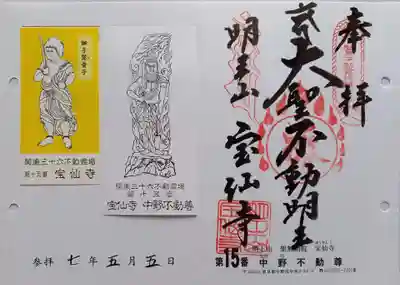 奉拝
大聖不動明王
明王山
宝仙寺
第15番 中野不動尊
関東三十六不動霊場
第十五番 宝仙寺
関東三十六不動霊場
第十五番
宝仙寺 中野不動尊
参拝 七年 五月 五日